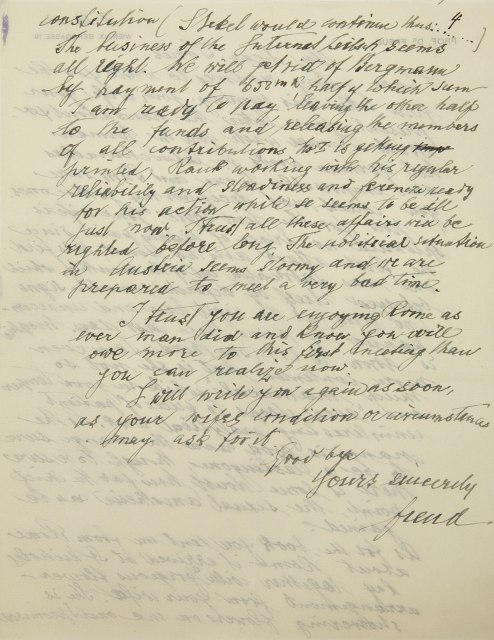 4
constitution (Stekel would continue thus: ......)
The business of the Internat. Zeitsch seems
all right. We will get rid of Bergmann
by payment of 650 mk half of which sum
I am ready to pay, leaving the other half
to the funds and releasing the members
of all contributions. is getting
printed, Rank working with his regular
reliability and steadiness and ready
for his action while he seems to be ill
just now. I trust all these affairs will be
righted before long. The political situation
in Austria seems stormy and we are
prepared to meet a very bad time.
I trust you are enjoying Rome as
ever man did and know you will
owe more to this first meeting than
you can realize now.
I will write you again as soon,
as your wifes condition or circumstances
may ask for it
Good bye
Yours sincerely
freud